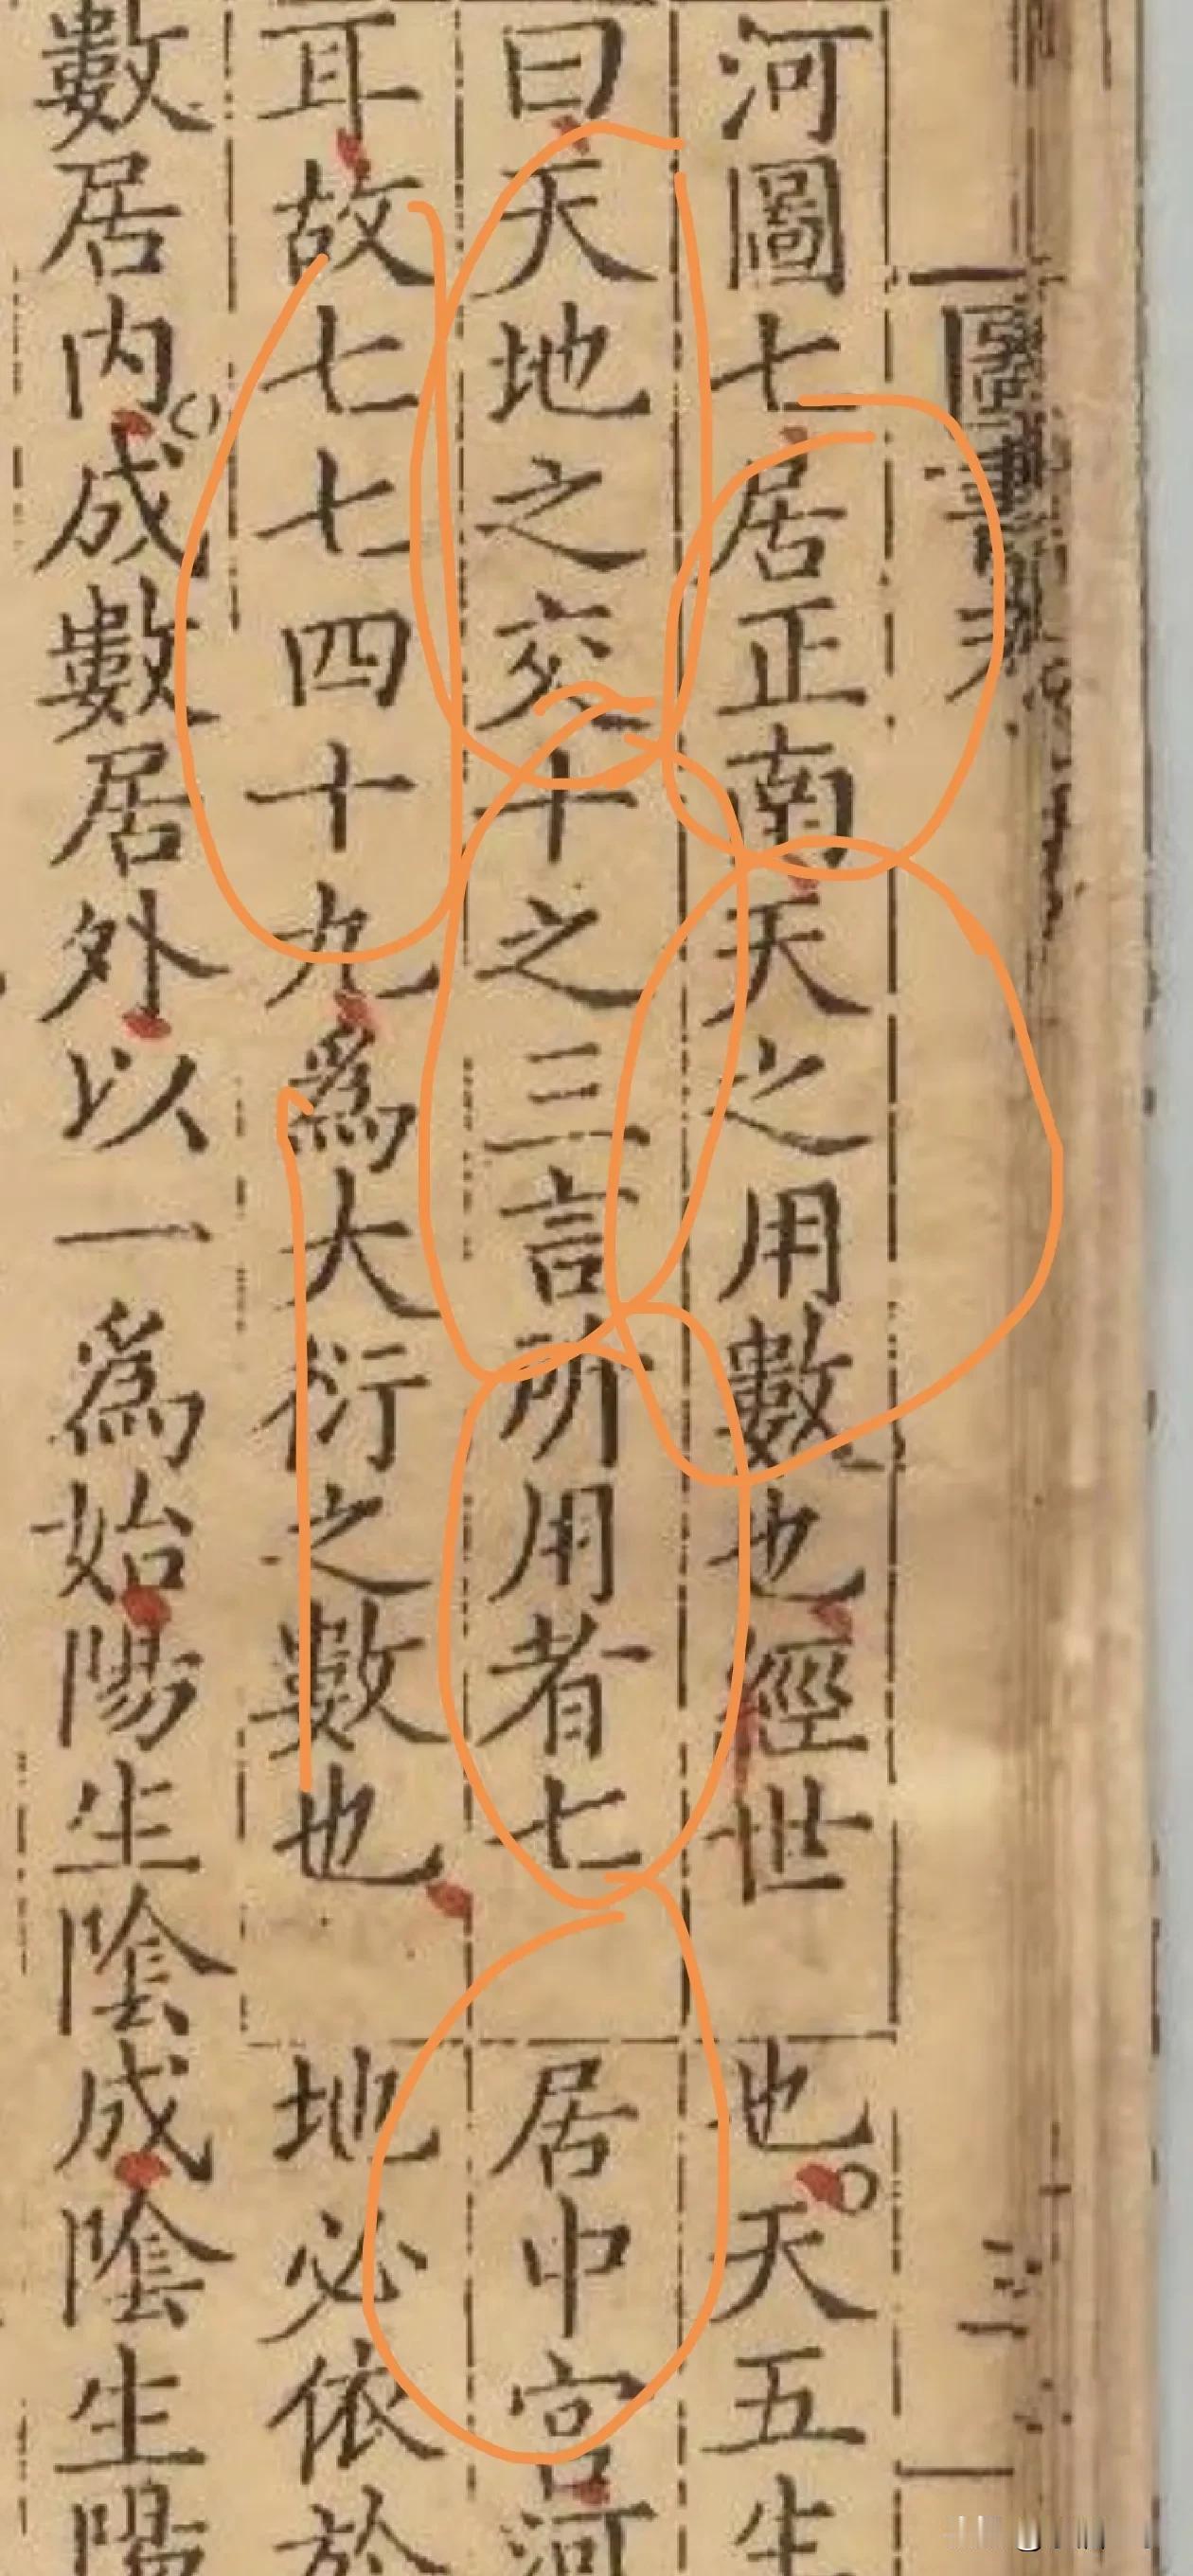 河圖七居正南天之用數也經世
曰天地之交十之三言所用者七
耳故七七四十九爲大衍之數也
也天五生
居中宫河
地必依於
數居内成數居外以一爲始陽生陰成陰生陽
圖書